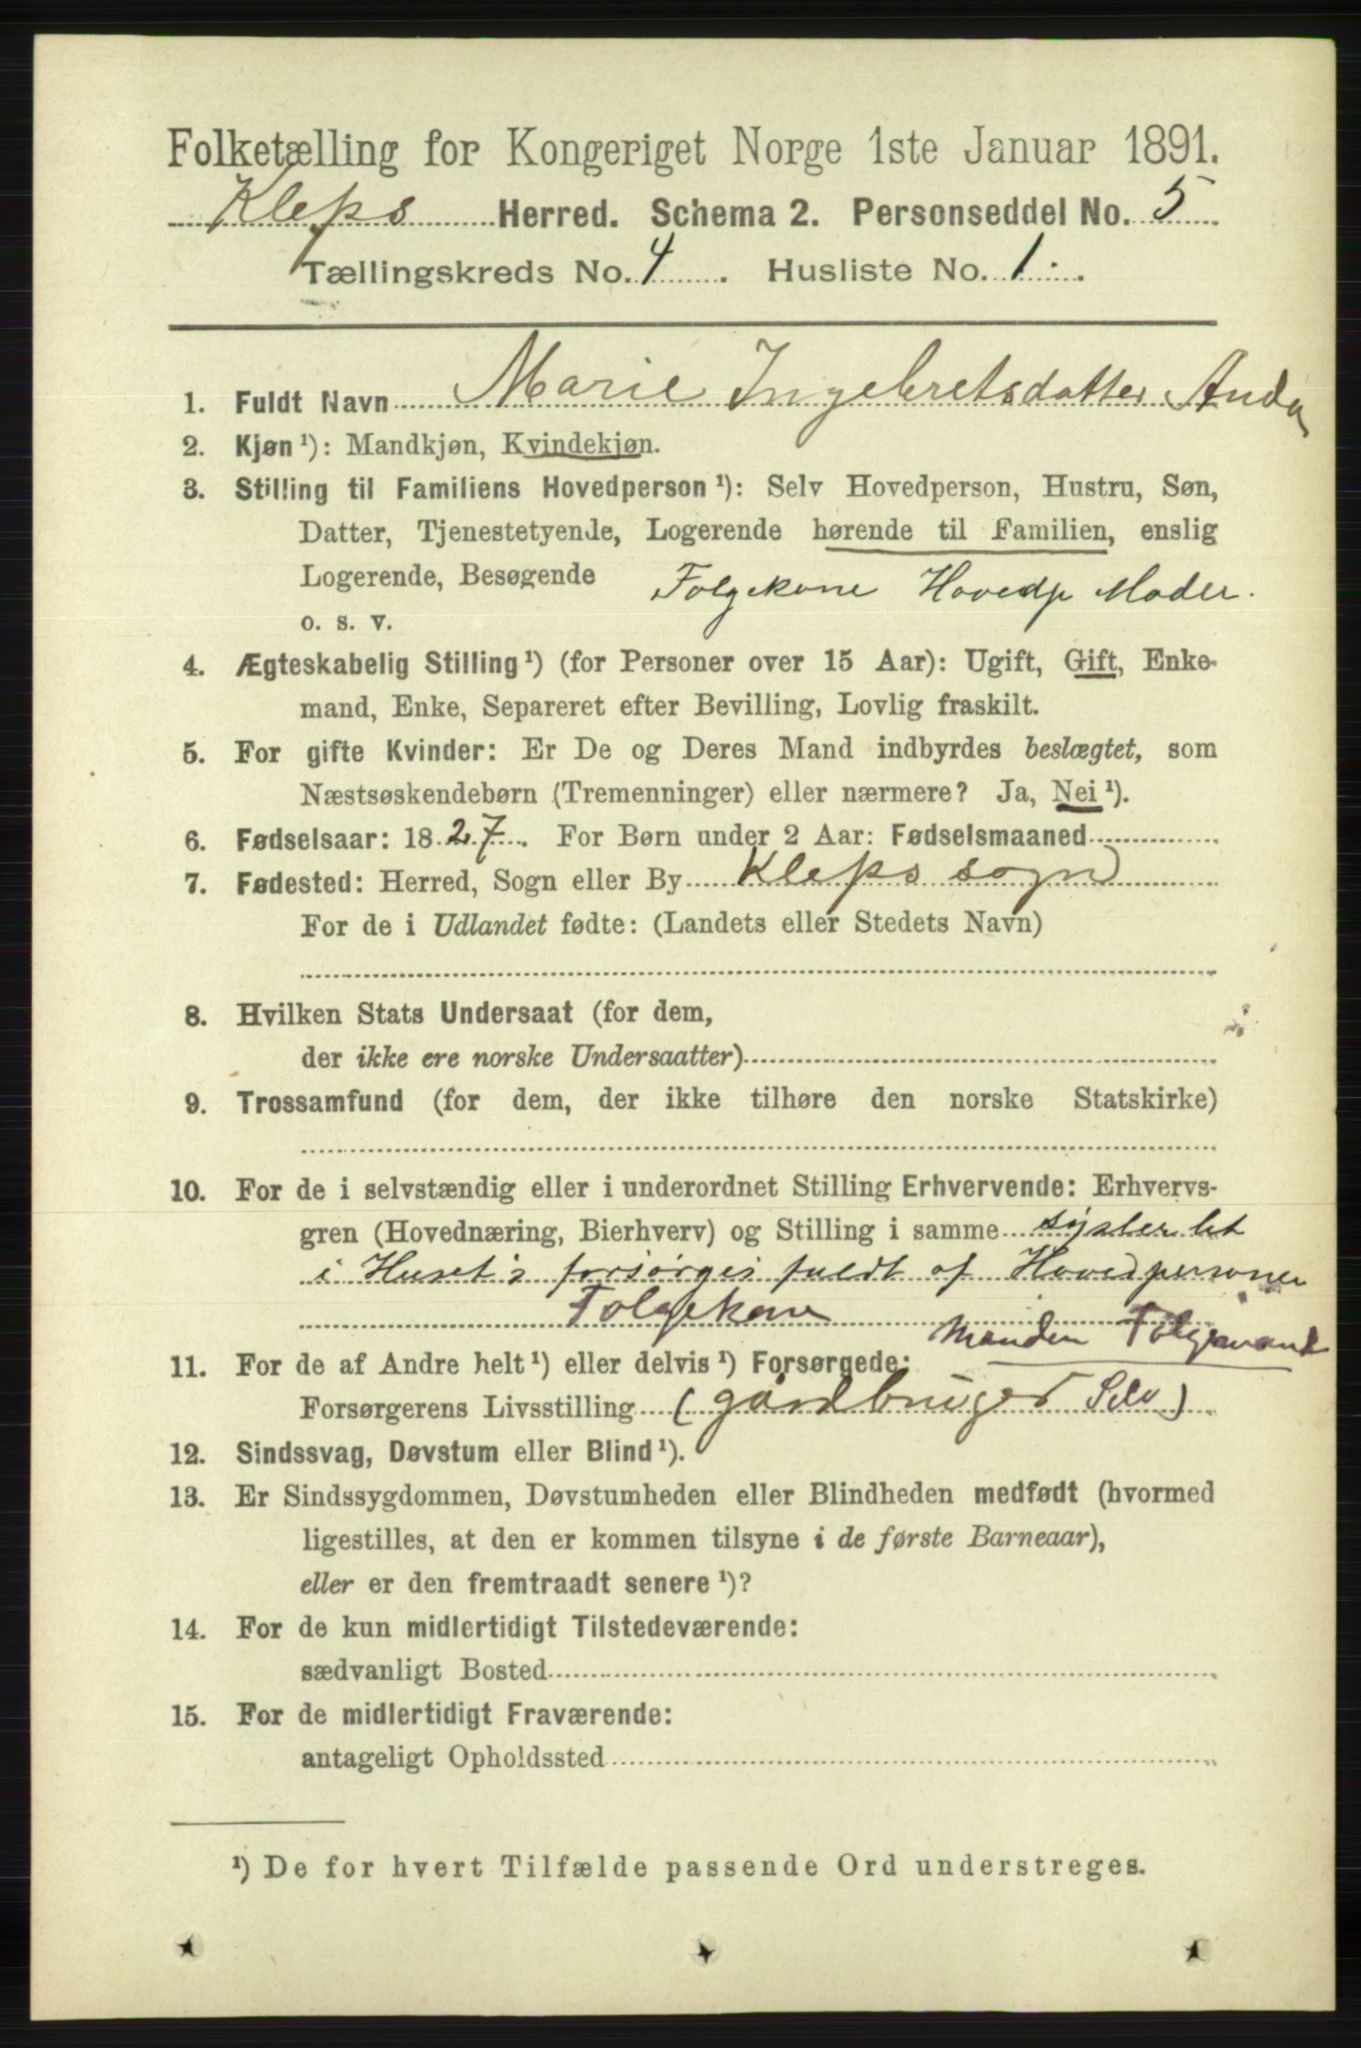 Folketælling for Kongeriget Norge 1ste Januar 1891.
Kleps Herred. Schema 2. Personseddel No. 5
Tællingskreds No. 4. Husliste No. 1.
1. Fuldt Navn Marie Ingebretsdatter Anda
2. Kjøn ¹): Mandkjøn, Kvindekjøn.
3. Stilling til Familiens Hovedperson ¹): Selv Hovedperson, Hustru, Søn,
Datter, Tjenestetyende, Logerende hørende til Familien, enslig
Logerende, Besøgende Folgekone Hovedp Moder.
o. s. v.
4. Ægteskabelig Stilling ¹) (for Personer over 15 Aar): Ugift, Gift, Enke-
mand, Enke, Separeret efter Bevilling, Lovlig fraskilt.
5. For gifte Kvinder: Er De og Deres Mand indbyrdes beslægtet, som
Næstsøskendebørn (Tremenninger) eller nærmere? Ja, Nei ¹).
6. Fødselsaar: 1827. For Børn under 2 Aar: Fødselsmaaned
7. Fødested: Herred, Sogn eller By Kleps sogn
For de i Udlandet fødte: (Landets eller Stedets Navn)
8. Hvilken Stats Undersaat (for dem,
der ikke ere norske Undersaatter)
9. Trossamfund (for dem, der ikke tilhøre den norske Statskirke)
10. For de i selvstændig eller i underordnet Stilling Erhvervende: Erhvervs-
gren (Hovednæring, Bierhverv) og Stilling i samme sysler lit
i Huset, forsørges fuldt af Hovedpersonen
Folgekone Manden Folgemand
11. For de af Andre helt ¹) eller delvis ¹) Forsørgede:
Forsørgerens Livsstilling (gårdbruger Selv)
12. Sindssvag, Døvstum eller Blind ¹).
13. Er Sindssygdommen, Døvstumheden eller Blindheden medfødt (hvormed
ligestilles, at den er kommen tilsyne i de første Barneaar),
eller er den fremtraadt senere ¹)?
14. For de kun midlertidigt Tilstedeværende:
sædvanligt Bosted
15. For de midlertidigt Fraværende:
antageligt Opholdssted
¹) De for hvert Tilfælde passende Ord understreges.